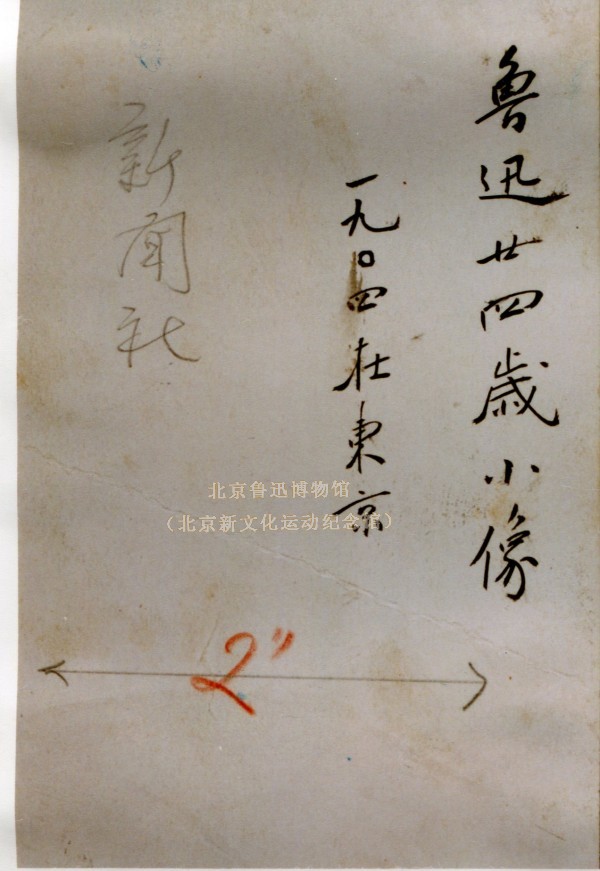 魯迅廿四歲小像
一九〇四在東京
新聞社
北京鲁迅博物馆
（北京新文化运动纪念馆）
2"